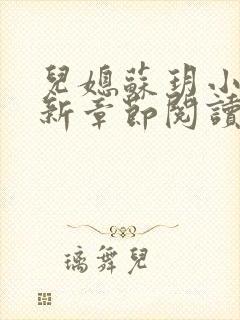 兒媳蘇玥小
新章節閱讀
璃舞兒